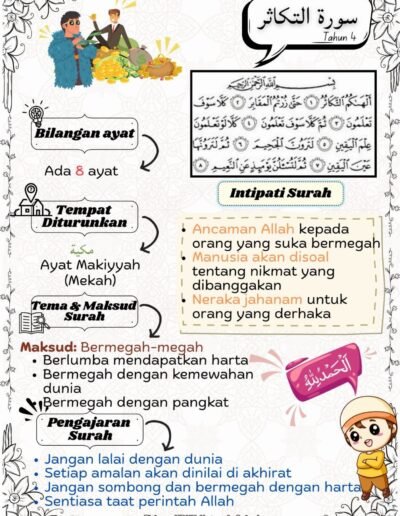 سورة التكاثر
Tahun 4
بِسْمِ اللَّهِ الرَّحْمَٰنِ الرَّحِيمِ
أَلْهَاكُمُ التَّكَاثُرُ ١ حَتَّىٰ زُرْتُمُ الْمَقَابِرَ ٢ كَلَّا سَوْفَ
تَعْلَمُونَ ٣ ثُمَّ كَلَّا سَوْفَ تَعْلَمُونَ ٤ كَلَّا لَوْ تَعْلَمُونَ
عِلْمَ الْيَقِينِ ٥ لَتَرَوُنَّ الْجَحِيمَ ٦ ثُمَّ لَتَرَوُنَّهَا
عَيْنَ الْيَقِينِ ٧ ثُمَّ لَتُسْأَلُنَّ يَوْمَئِذٍ عَنِ النَّعِيمِ ٨
Bilangan ayat
Ada 8 ayat
Tempat
Diturunkan
مكية
Ayat Makiyyah
(Mekah)
Intipati Surah
Ancaman Allah kepada
orang yang suka bermegah
Manusia akan disoal
tentang nikmat yang
dibanggakan
Neraka jahanam untuk
orang yang derhaka
Tema & Maksud
Surah
Maksud: Bermegah-megah
Berlumba mendapatkan harta
Bermegah dengan kemewahan
dunia
Bermegah dengan pangkat
الحمد لله
Pengajaran
Surah
Jangan lalai dengan dunia
Setiap amalan akan dinilai di akhirat
Jangan sombong dan bermegah dengan harta
Sentiasa taat perintah Allah